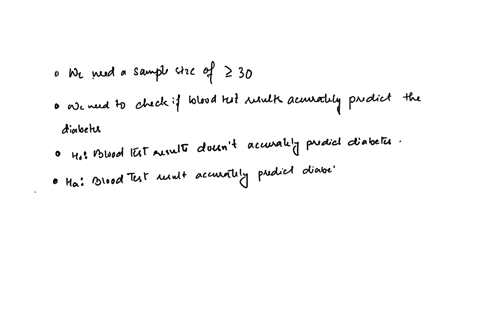 • We need a sample size of ≥ 30
• We need to check if blood test results accurately predict the
diabetes
• H₀: Blood test results doesn't accurately predict diabetes.
• Ha: Blood Test result accurately predict diabe